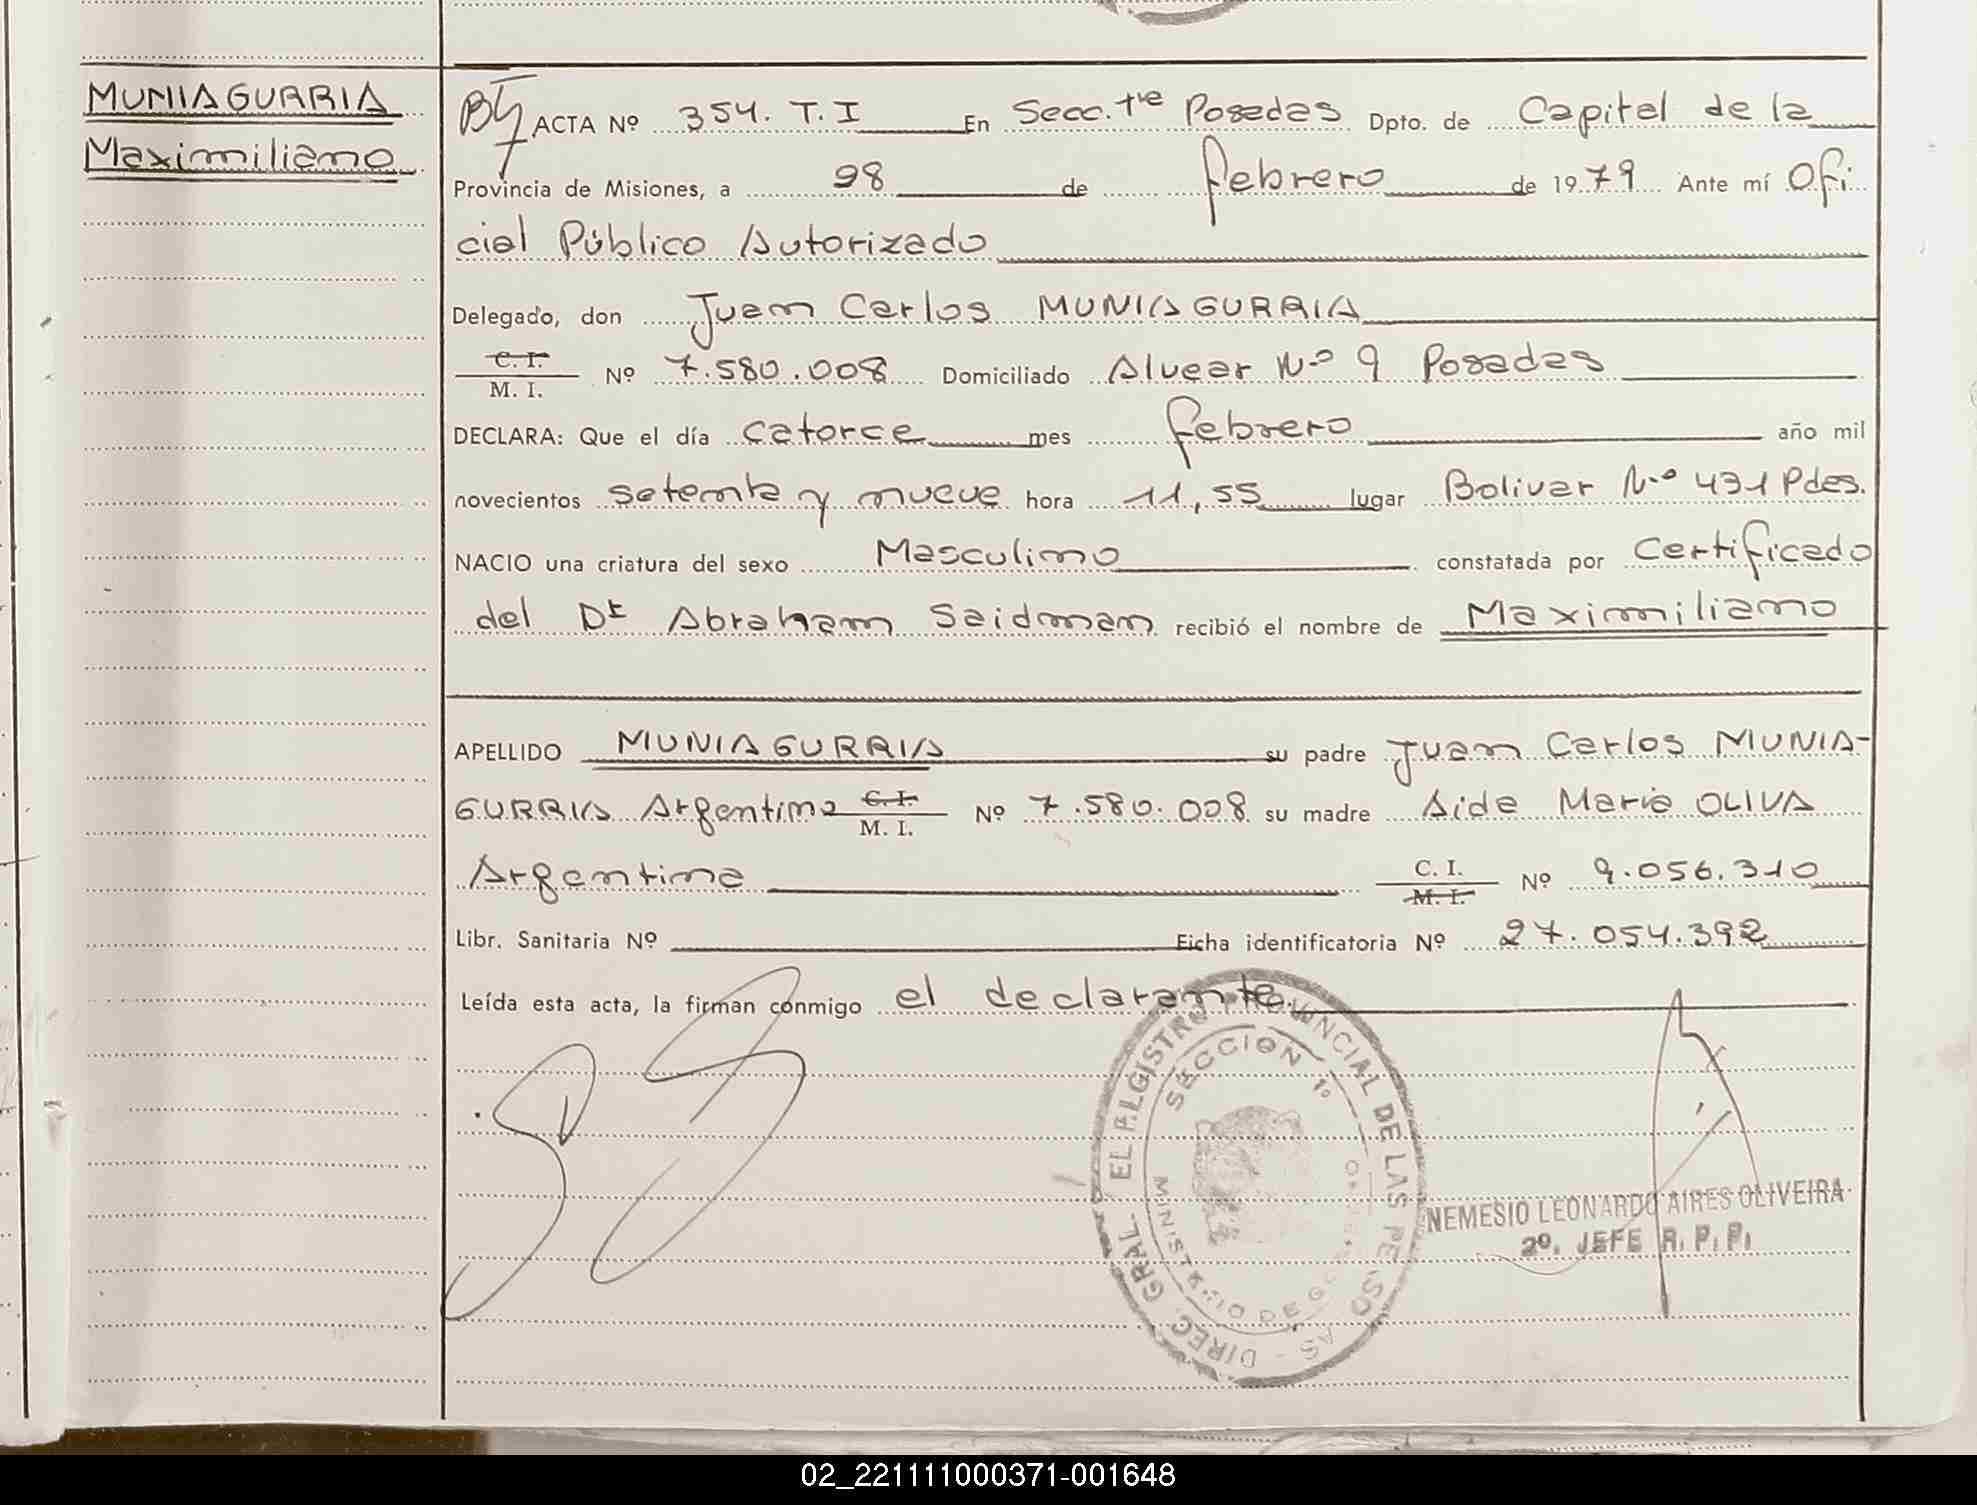 MUNIAGURRIA
Maximiliano
ACTA Nº 354. T. I En Secc. 1re Posadas Dpto. de Capital de la
Provincia de Misiones, a 28 de febrero de 1979 Ante mí Ofi
cial Público Autorizado
Delegado, don Juan Carlos MUNIAGURRIA
C. I.
M. I. Nº 7.580.008 Domiciliado Alvear Nº 9 Posadas
DECLARA: Que el día catorce mes febrero año mil
novecientos setenta y nueve hora 11,55 lugar Bolivar Nº 431 Pdas.
NACIO una criatura del sexo Masculino constatada por Certificado
del Dr Abraham Saidman recibió el nombre de Maximiliano
APELLIDO MUNIAGURRIA su padre Juan Carlos MUNIA-
GURRIA Argentino C. I.
M. I. Nº 7.580.008 su madre Aide Maria OLIVA
Argentina C. I.
M. I. Nº 9.056.310
Libr. Sanitaria Nº Ficha identificatoria Nº 27.054.392
Leída esta acta, la firman conmigo el declarante.
DIREC. GRAL. REGISTRO PROVINCIAL DE LAS PERSONAS
SECCION 1º
MINISTERIO DE
NEMESIO LEONARDO AIRES OLIVEIRA
2º. JEFE R. P. P.
02_221111000371-001648